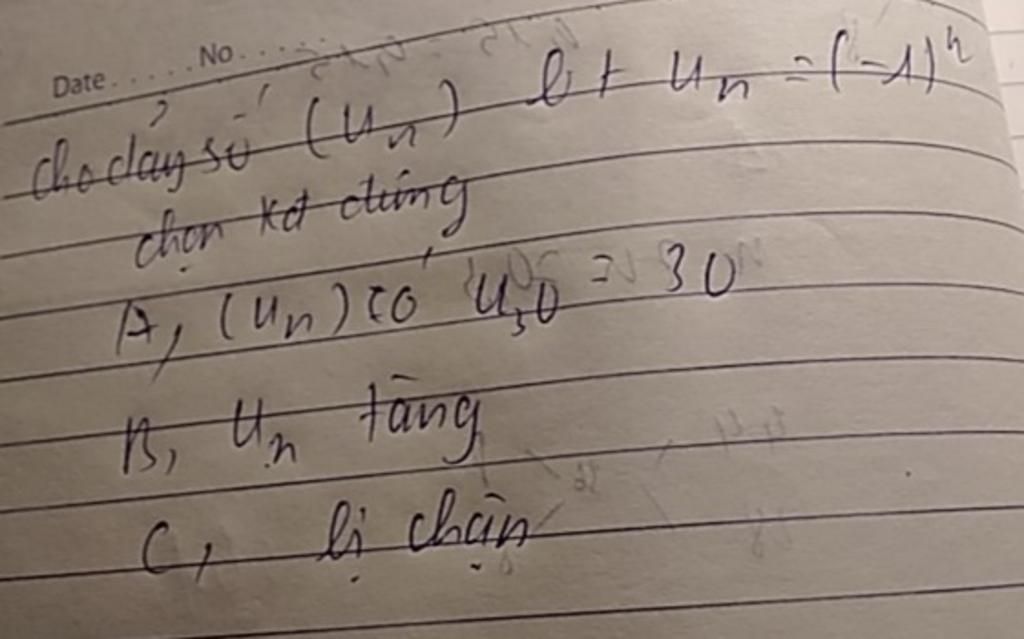 Date..... No......
Cho dãy số (un) bt un = (-1)^n
chọn kđ đúng
A, (un) có u30 = 30
B, un tăng
C, bị chặn